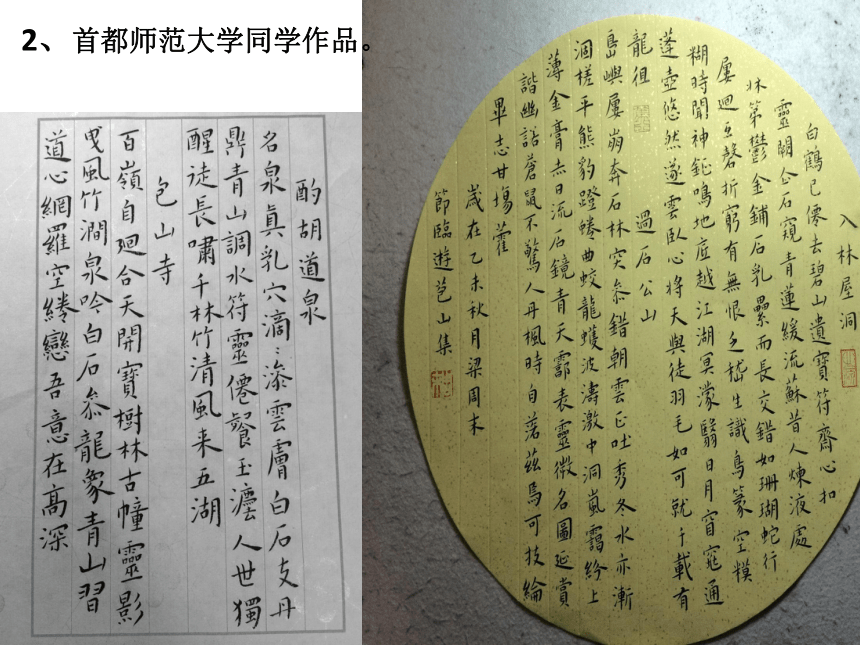 2、首都师范大学同学作品。
酌胡道泉
名泉真乳穴滴〻滲雲膚白石支丹
鼎青山調水符靈僊餐玉瀍人世獨
醒徒長嘯千林竹清風来五湖
包山寺
百嶺自廻合天開寶樹林古幢靈影
曳風竹澗泉吟白石叅龍象青山習
道心網羅空繾戀吾意在髙深
入林屋洞
白鶴已僊去碧山遺寶符齋心扣
靈關企石窺青蓮緩流蘇昔人煉液處
牀第鬱金鋪石乳纍而長交錯如珊瑚蛇行
屢廻互磬折窮有無恨乏嵇生識鳥篆空模
糊時聞神鉦鳴地底越江湖冥濛翳日月窅窕通
蓬壺悠然遂雲臥心将天與徒羽毛如可就千載有
龍徂
過石公山
島嶼屢崩奔石林突叅錯朝雲正吐秀冬水亦漸
涸槎平熊豹蹬蜷曲蛟龍蠖波濤激中洞嵐靄紛上
薄金膏赤日流石鏡青天霩表靈徴名圖延賞
諧幽諾蒼鼠不驚人丹楓時自落茲焉可投綸
畢志甘場藿
歲在乙未秋月梁周末
節臨遊苞山集